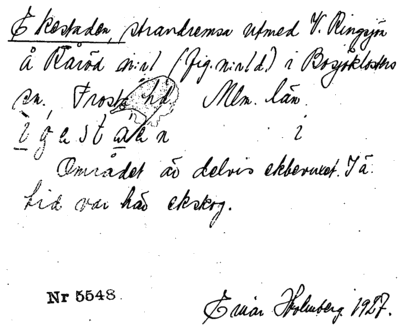 Ekestaden, strandremsa utmed V. Ringsjön
å Råröd n:o 1 i Bosjöklosters
sn. Frosta hd Mlm. län.
i
Området är delvis ekbevuxet. I ä.
tid var här ekskog.
Nr 5548
Einar Holmberg 1927.